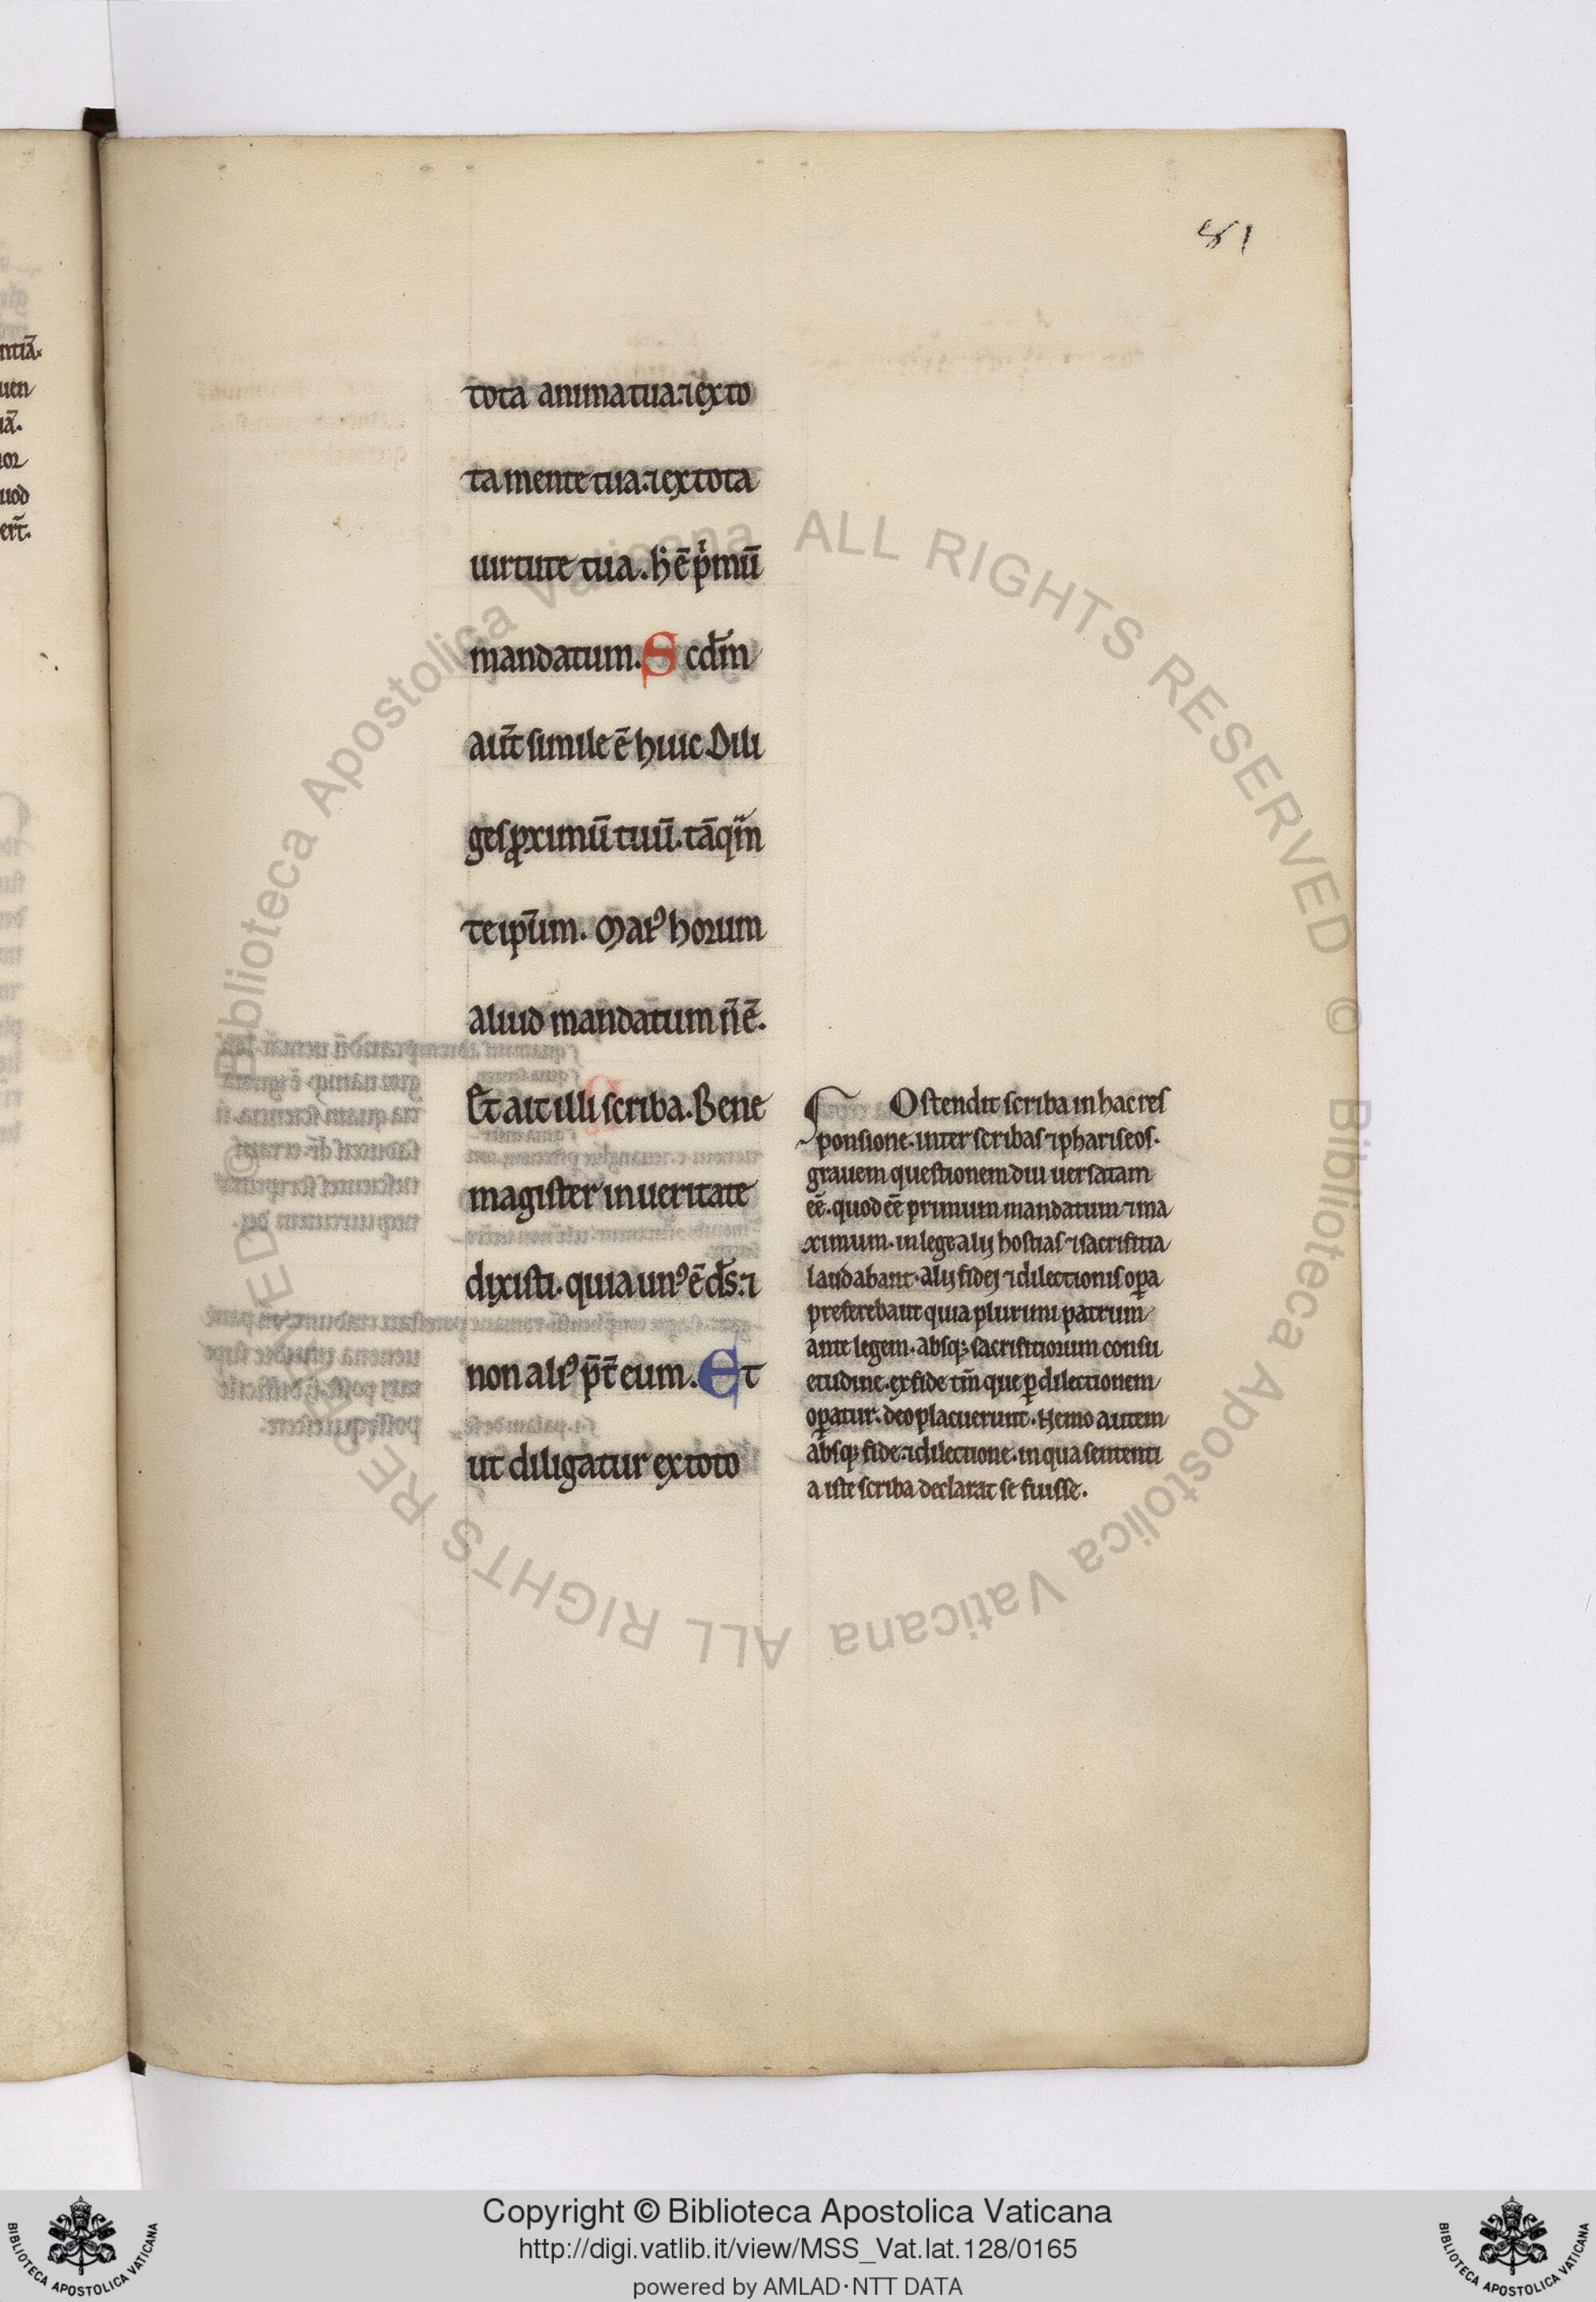 81
tota anima tua. ⁊ ex to
ta mente tua. ⁊ ex tota
uirtute tua. h̄ ē p̄mū
mandatum. Scd̄m
aūt simile ē huic. Dili
ges ꝓximū tuū. tāq̄m
te ip̄um. Maiꝰ horum
aliud mandatum n̄ ē.
Et ait illi scriba. Bene
magister in ueritate
dixisti. quia unꝰ ē ds̄. ⁊
non aliꝰ p̄t̄ eum. Et
ut diligatur ex toto
Ostendit scriba in hac res
ponsione. inter scribas ⁊ phariseos.
grauem questionem diu uersatam
eē̄. quod eē̄ primum mandatum ⁊ ma
ximum. in lege alij hostias ⁊ sacrificia
laudabant. alij fidej ⁊ dilectionis oꝑa
preferebant quia plurimi patrum
ante legem. absqꝫ sacrifitiorum consu
etudine. ex fide tm̄ que ꝑ dilectionem
oꝑatur. deo placuerunt. Nemo autem
absqꝫ fide. ⁊ dilectione. in qua sententi
a iste scriba declarat se fuisse.
ntiā.
uen
iā.
ior
uod
ert̄.
© Biblioteca Apostolica Vaticana ALL RIGHTS RESERVED © Biblioteca Apostolica Vaticana ALL RIGHTS RESERVED
Copyright © Biblioteca Apostolica Vaticana
http://digi.vatlib.it/view/MSS_Vat.lat.128/0165
powered by AMLAD·NTT DATA
BIBLIOTECA APOSTOLICA VATICANA
BIBLIOTECA APOSTOLICA VATICANA